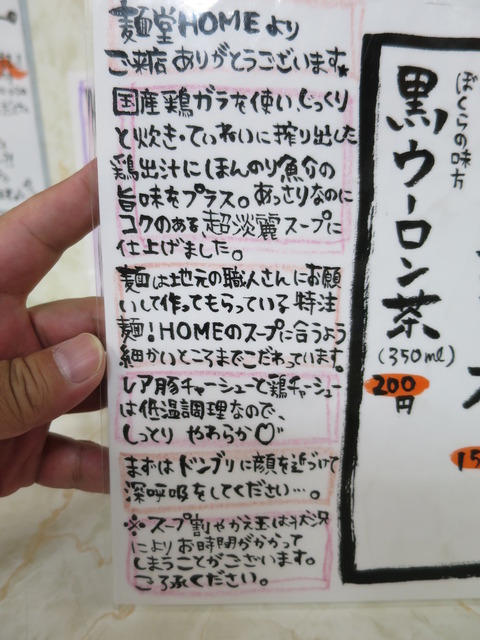 麺堂HOMEより
ご来店ありがとうございます
国産鶏ガラを使い、じっくり
と炊きていねいに搾り出した
鶏出汁にほんのり魚介の
旨味をプラス。あっさりなのに
コクのある、超淡麗スープに
仕上げました。
麺は地元の職人さんにお願
いして作ってもらっている特注
麺!HOMEのスープに合うよう
細かいところまでこだわっています。
レア豚チャーシューと鶏チャーシュー
は低温調理なので、
しっとり やわらか♡
まずはドンブリに顔を近づけて
深呼吸をしてください…。
※スープ割りやかえ玉は状況
によりお時間がかかって
しまうことがございます。
ご了承ください。
ぼくらの味方
黒ウーロン茶
(350ml)
200
円